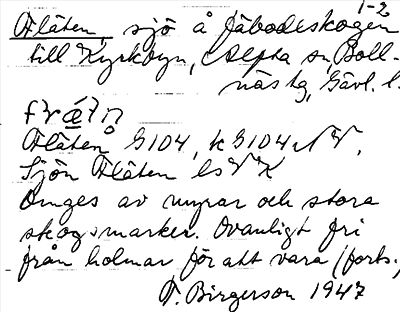 1-2
Flåten, sjö å Fäbodeskogen
till Kyrkbyn, Alfta sn, Boll-
näs tg, Gävl. l.
Flåten G104, k G104 NV.
Sjön Flåten ls VK
Omges av myrar och stora
skogsmarker. Ovanligt fri
från holmar för att vara (forts.)
T. Birgerson 1947